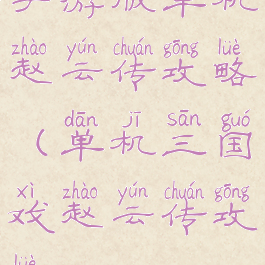 手游版单机
zhào yún chuán gōng lüè
赵云传攻略
dān jī sān guó
（单机三国
xì zhào yún chuán gōng
戏赵云传攻
lüè